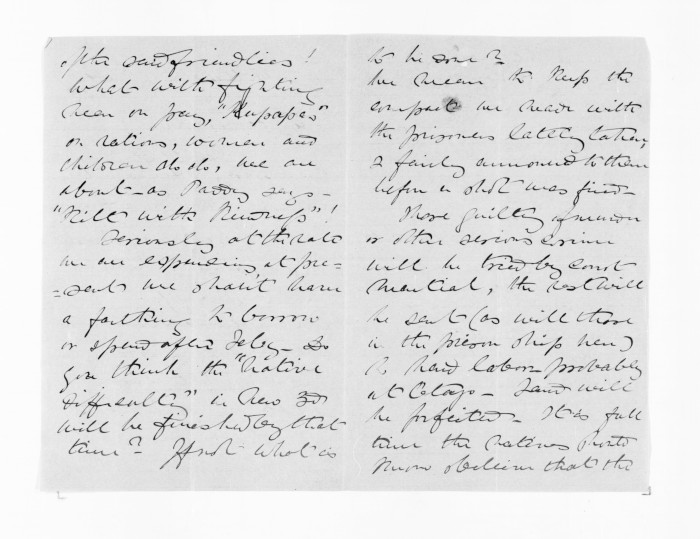 of the said friendlies!
What with fighting
men on pay, "Kupapas"
on rations, women and
children do do, we are
about - as Paddy says -
"Kilt with Kindness"!
Seriously at the rate
we are expending at pre=
=sent we shan't have
a farthing to borrow
or spend after Feby - Do
you think the "Native
difficulty" in New Zd
will be finished by that
time? If not what is
to be done?
We mean to keep the
compact we made with
the prisoners lately taken,
& fairly announced to them
before a shot was fired -
Those guilty of murder
or other serious crime
will be tried by court
martial, the rest will
be sent (as will those
in the prison ship here)
to hard labor probably
at Otago - Land will
be forfeited - It is full
time the natives should
know believe that the